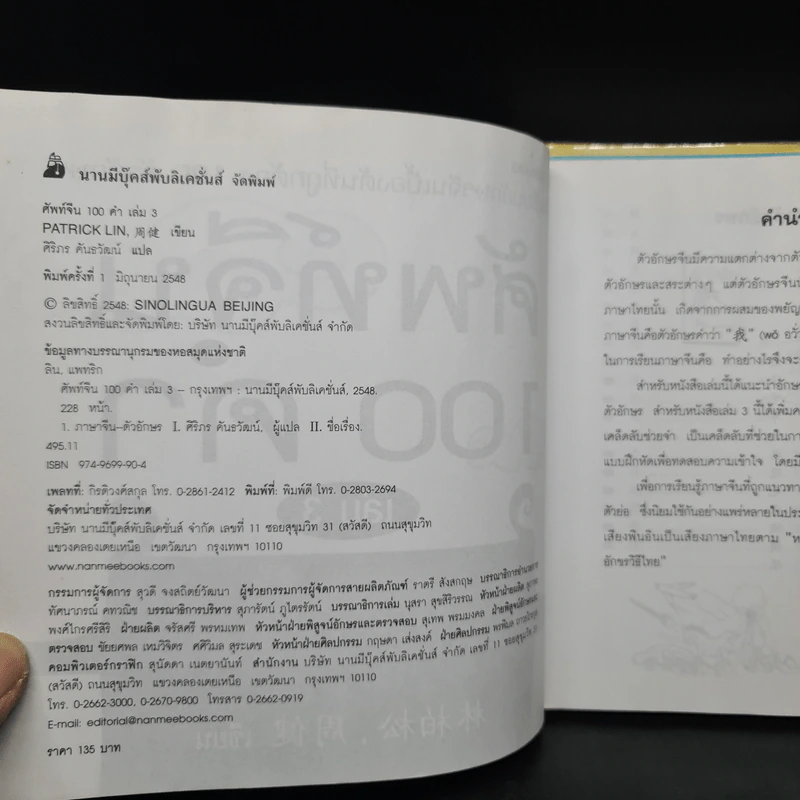 นานมีบุ๊คส์พับลิเคชั่นส์ จัดพิมพ์
ศัพท์จีน 100 คำ เล่ม 3
PATRICK LIN, 周健 เขียน
ศิริภร คันธวัฒน์ แปล
พิมพ์ครั้งที่ 1 มิถุนายน 2548
© ลิขสิทธิ์ 2548: SINOLINGUA BEIJING
สงวนลิขสิทธิ์และจัดพิมพ์โดย: บริษัท นานมีบุ๊คส์พับลิเคชั่นส์ จำกัด
ข้อมูลทางบรรณานุกรมของหอสมุดแห่งชาติ
ลิน, แพทริก
ศัพท์จีน 100 คำ เล่ม 3 – กรุงเทพฯ : นานมีบุ๊คส์พับลิเคชั่นส์, 2548.
228 หน้า.
1. ภาษาจีน--ตัวอักษร I. ศิริภร คันธวัฒน์, ผู้แปล II. ชื่อเรื่อง.
495.11
ISBN 974-9699-90-4
เพลทที่: กิรติวงศ์สกุล โทร. 0-2861-2412 พิมพ์ที่: พิมพ์ดี โทร. 0-2803-2694
จัดจำหน่ายทั่วประเทศ
บริษัท นานมีบุ๊คส์พับลิเคชั่นส์ จำกัด เลขที่ 11 ซอยสุขุมวิท 31 (สวัสดี) ถนนสุขุมวิท
แขวงคลองเตยเหนือ เขตวัฒนา กรุงเทพฯ 10110
www.nanmeebooks.com
กรรมการผู้จัดการ สุวดี จงสถิตย์วัฒนา ผู้ช่วยกรรมการผู้จัดการสายผลิตภัณฑ์ ราตรี สังสกฤษ บรรณาธิการอำนวยการ
ทัศนาภรณ์ คทวณิช บรรณาธิการบริหาร สุภารัตน์ ภูไตรรัตน์ บรรณาธิการเล่ม นุสรา สุขสิริวรรณ หัวหน้าฝ่ายผลิต
พงศ์ไกรศรีสิริ ฝ่ายผลิต จรัสศรี พรหมเทพ หัวหน้าฝ่ายพิสูจน์อักษรและตรวจสอบ สุเทพ พรมมงคล ฝ่ายพิสูจน์อักษรและ
ตรวจสอบ ชัยยศพล เหมวิจิตร ศศิวิมล สุระเดช หัวหน้าฝ่ายศิลปกรรม กฤษดา เส่งสงค์ ฝ่ายศิลปกรรม
คอมพิวเตอร์กราฟิก สุนัดดา เนตยานันท์ สำนักงาน บริษัท นานมีบุ๊คส์พับลิเคชั่นส์ จำกัด เลขที่ 11 ซอยสุขุมวิท 31
(สวัสดี) ถนนสุขุมวิท แขวงคลองเตยเหนือ เขตวัฒนา กรุงเทพฯ 10110
โทร. 0-2662-3000, 0-2670-9800 โทรสาร 0-2662-0919
E-mail: editorial@nanmeebooks.com
ราคา 135 บาท
คำนำ
ตัวอักษรจีนมีความแตกต่างจากตัว
ตัวอักษรและสระต่างๆ แต่ตัวอักษรจีน
ภาษาไทยนั้น เกิดจากการผสมของพยัญ
ภาษาจีนคือตัวอักษรคำว่า "我" (wǒ อวั่
ในการเรียนภาษาจีนคือ ทำอย่างไรจึงจะ
สำหรับหนังสือเล่มนี้ได้แนะนำอักษ
ตัวอักษร สำหรับหนังสือเล่ม 3 นี้ได้เพิ่ม
เคล็ดลับช่วยจำ เป็นเคล็ดลับที่ช่วยในกา
แบบฝึกหัดเพื่อทดสอบความเข้าใจ โดยมี
เพื่อการเรียนรู้ภาษาจีนที่ถูกแนวทา
ตัวย่อ ซึ่งนิยมใช้กันอย่างแพร่หลายในประ
เสียงพินอินเป็นเสียงภาษาไทยตาม "ห
อักขรวิธีไทย"